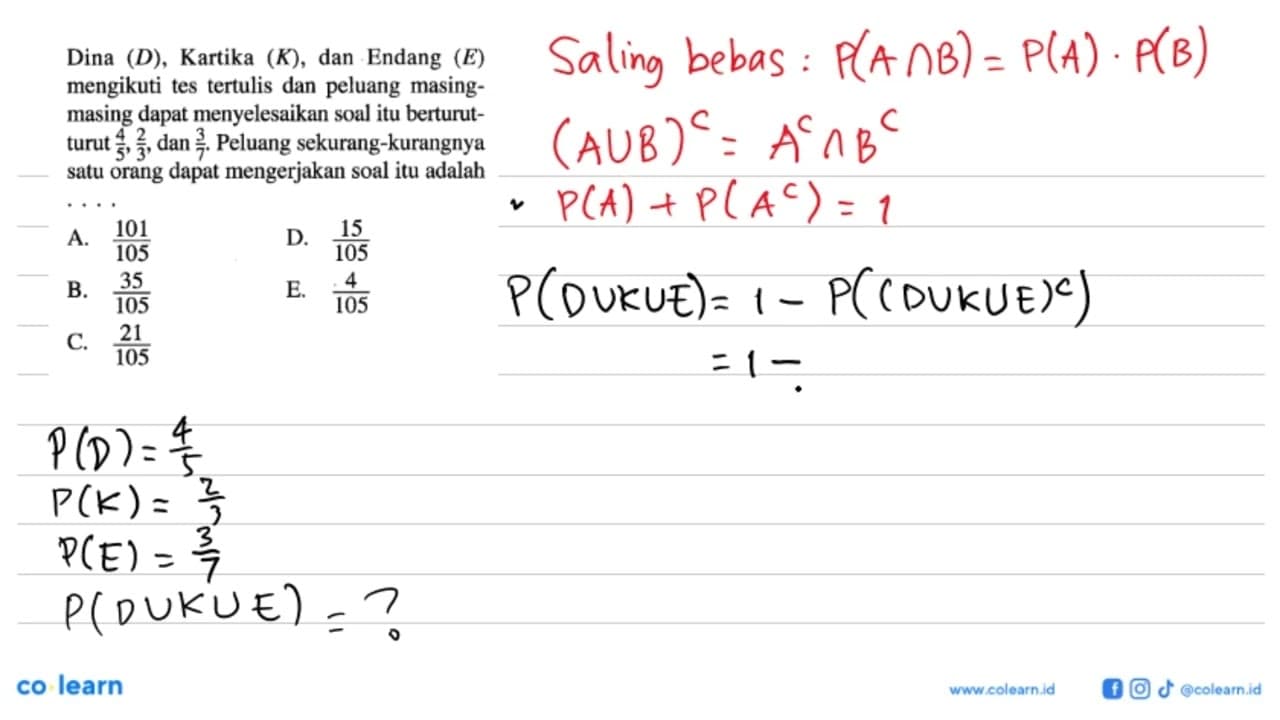 Dina (D), Kartika (K), dan Endang (E)
mengikuti tes tertulis dan peluang masing-
masing dapat menyelesaikan soal itu berturut-
turut 4/5, 2/3, dan 3/7. Peluang sekurang-kurangnya
satu orang dapat mengerjakan soal itu adalah
. . . .
A. 101/105
B. 35/105
C. 21/105
D. 15/105
E. 4/105
Saling bebas : P(A∩B) = P(A) · P(B)
(A∪B)ᶜ = Aᶜ ∩ Bᶜ
P(A) + P(Aᶜ) = 1
P(D∪K∪E) = 1 – P((D∪K∪E)ᶜ)
= 1 –
P(D) = 4/5
P(K) = 2/3
P(E) = 3/7
P(D∪K∪E) = ?
co learn
www.colearn.id
@colearn.id